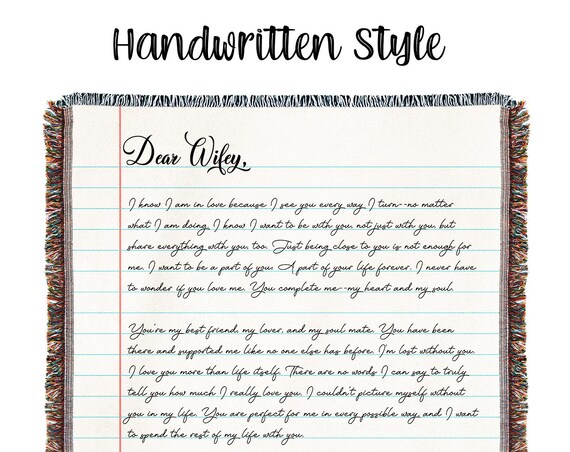 Handwritten Style
Dear Wifey,
I know I am in love because I see you every way I turn--no matter
what I am doing. I know I want to be with you, not just with you, but
share everything with you, too. Just being close to you is not enough for
me. I want to be a part of you. A part of your life forever. I never have
to wonder if you love me. You complete me--my heart and my soul.
You're my best friend, my lover, and my soul mate. You have been
there and supported me like no one else has before. I'm lost without you.
I love you more than life itself. There are no words I can say to truly
tell you how much I really love you. I couldn't picture myself without
you in my life. You are perfect for me in every possible way, and I want
to spend the rest of my life with you.